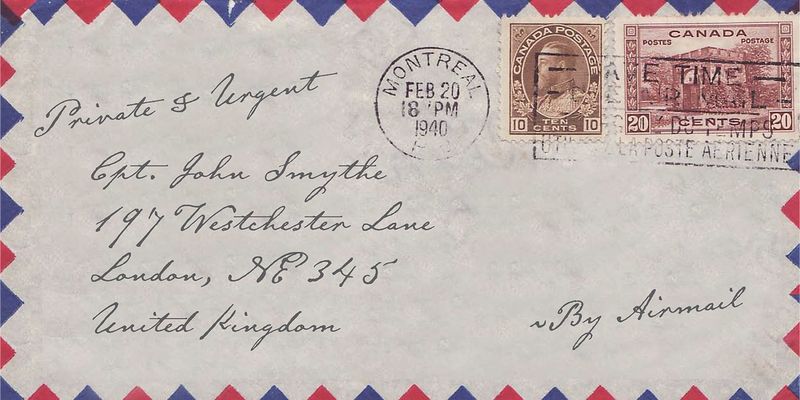 Private & Urgent
MONTREAL
FEB 20
18 PM
1940
CANADA POSTAGE
10 TEN CENTS 10
CANADA
POSTES POSTAGE
20 CENTS 20
TIME
LA POSTE AERIENNE
Cpt. John Smythe
197 Westchester Lane
London, NE 345
United Kingdom
~By Airmail